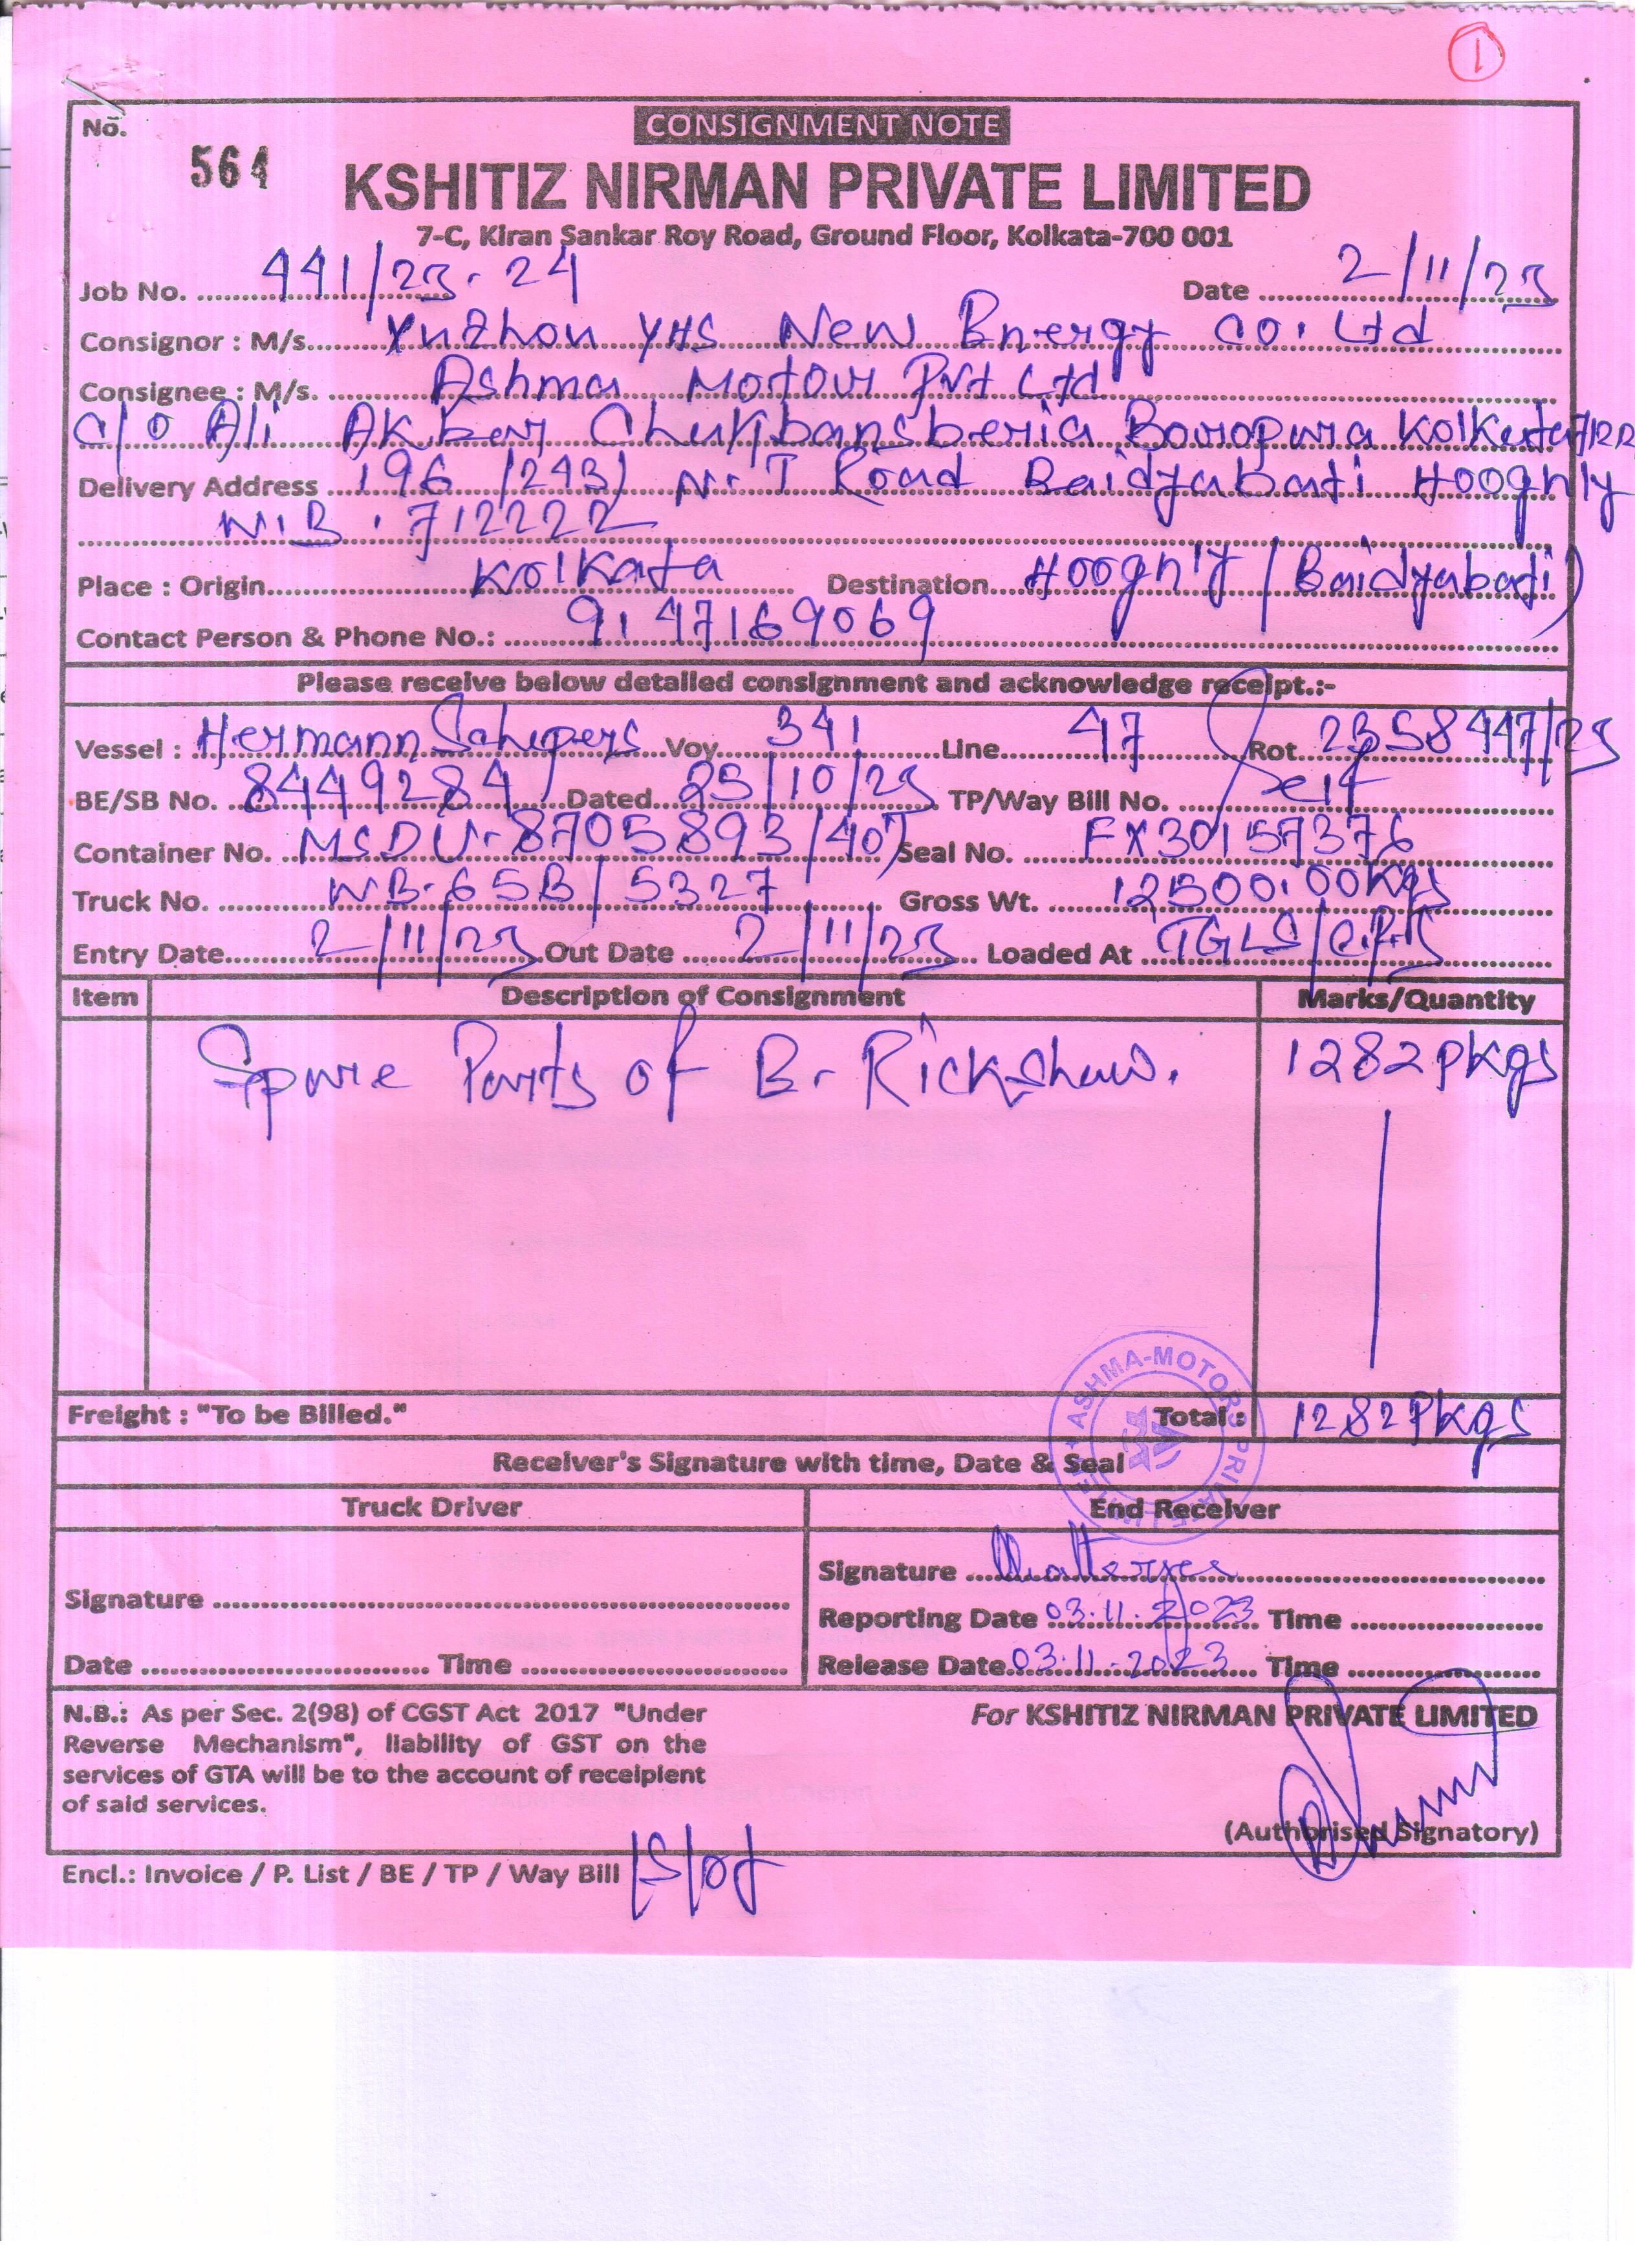 1
No.
CONSIGNMENT NOTE
564
KSHITIZ NIRMAN PRIVATE LIMITED
7-C, Kiran Sankar Roy Road, Ground Floor, Kolkata-700 001
Job No. 441/23-24 Date 2/11/23
Consignor : M/s. Xuzhou YHS New Energy Co. Ltd
Consignee : M/s. Ashma Motour Pvt Ltd
C/O Ali Akbar Chakbansberia Boropara Kolkata
Delivery Address 196 /243) N.T Road Baidyabati Hooghly
W.B. 712222
Place : Origin Kolkata Destination Hooghly (Baidyabati)
Contact Person & Phone No.: 9147169069
Please receive below detailed consignment and acknowledge receipt.:-
Vessel : Hermann Schepers Voy 341 Line 47 Rot 2358447/23
BE/SB No. 8449284 Dated 25/10/23 TP/Way Bill No. Self
Container No. MSDU-8705893/40' Seal No. FX30157376
Truck No. WB-65B/5327 Gross Wt. 12500.00Kgs
Entry Date 2/11/23 Out Date 2/11/23 Loaded At TGLS/CFS
Item Description of Consignment Marks/Quantity
Spare Parts of E-Rickshaw. 1282 Pkgs
ASHMA-MOTOR PRIVATE LIMITED
Freight : "To be Billed." Total : 1282 Pkgs
Receiver's Signature with time, Date & Seal
Truck Driver End Receiver
Signature Signature Chatterjee
Reporting Date 03.11.2023 Time
Date Time Release Date 03.11.2023 Time
N.B.: As per Sec. 2(98) of CGST Act 2017 "Under For KSHITIZ NIRMAN PRIVATE LIMITED
Reverse Mechanism", liability of GST on the
services of GTA will be to the account of receipient
of said services.
(Authorised Signatory)
Encl.: Invoice / P. List / BE / TP / Way Bill